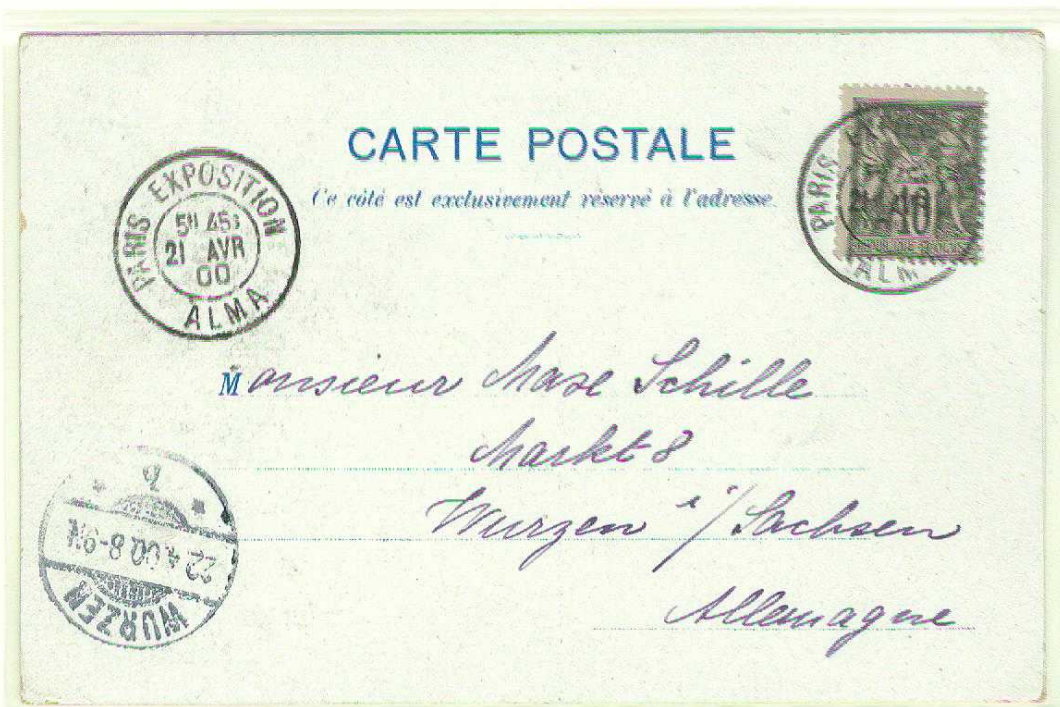 CARTE POSTALE
Ce côté est exclusivement réservé à l'adresse.
PARIS EXPOSITION
5H 45
21 AVR
00
ALMA
PARIS
10
ALM
Monsieur Max Schille
Markt 8
Wurzen i/Sachsen
Allemagne
WURZEN
22.4.00.8-9N